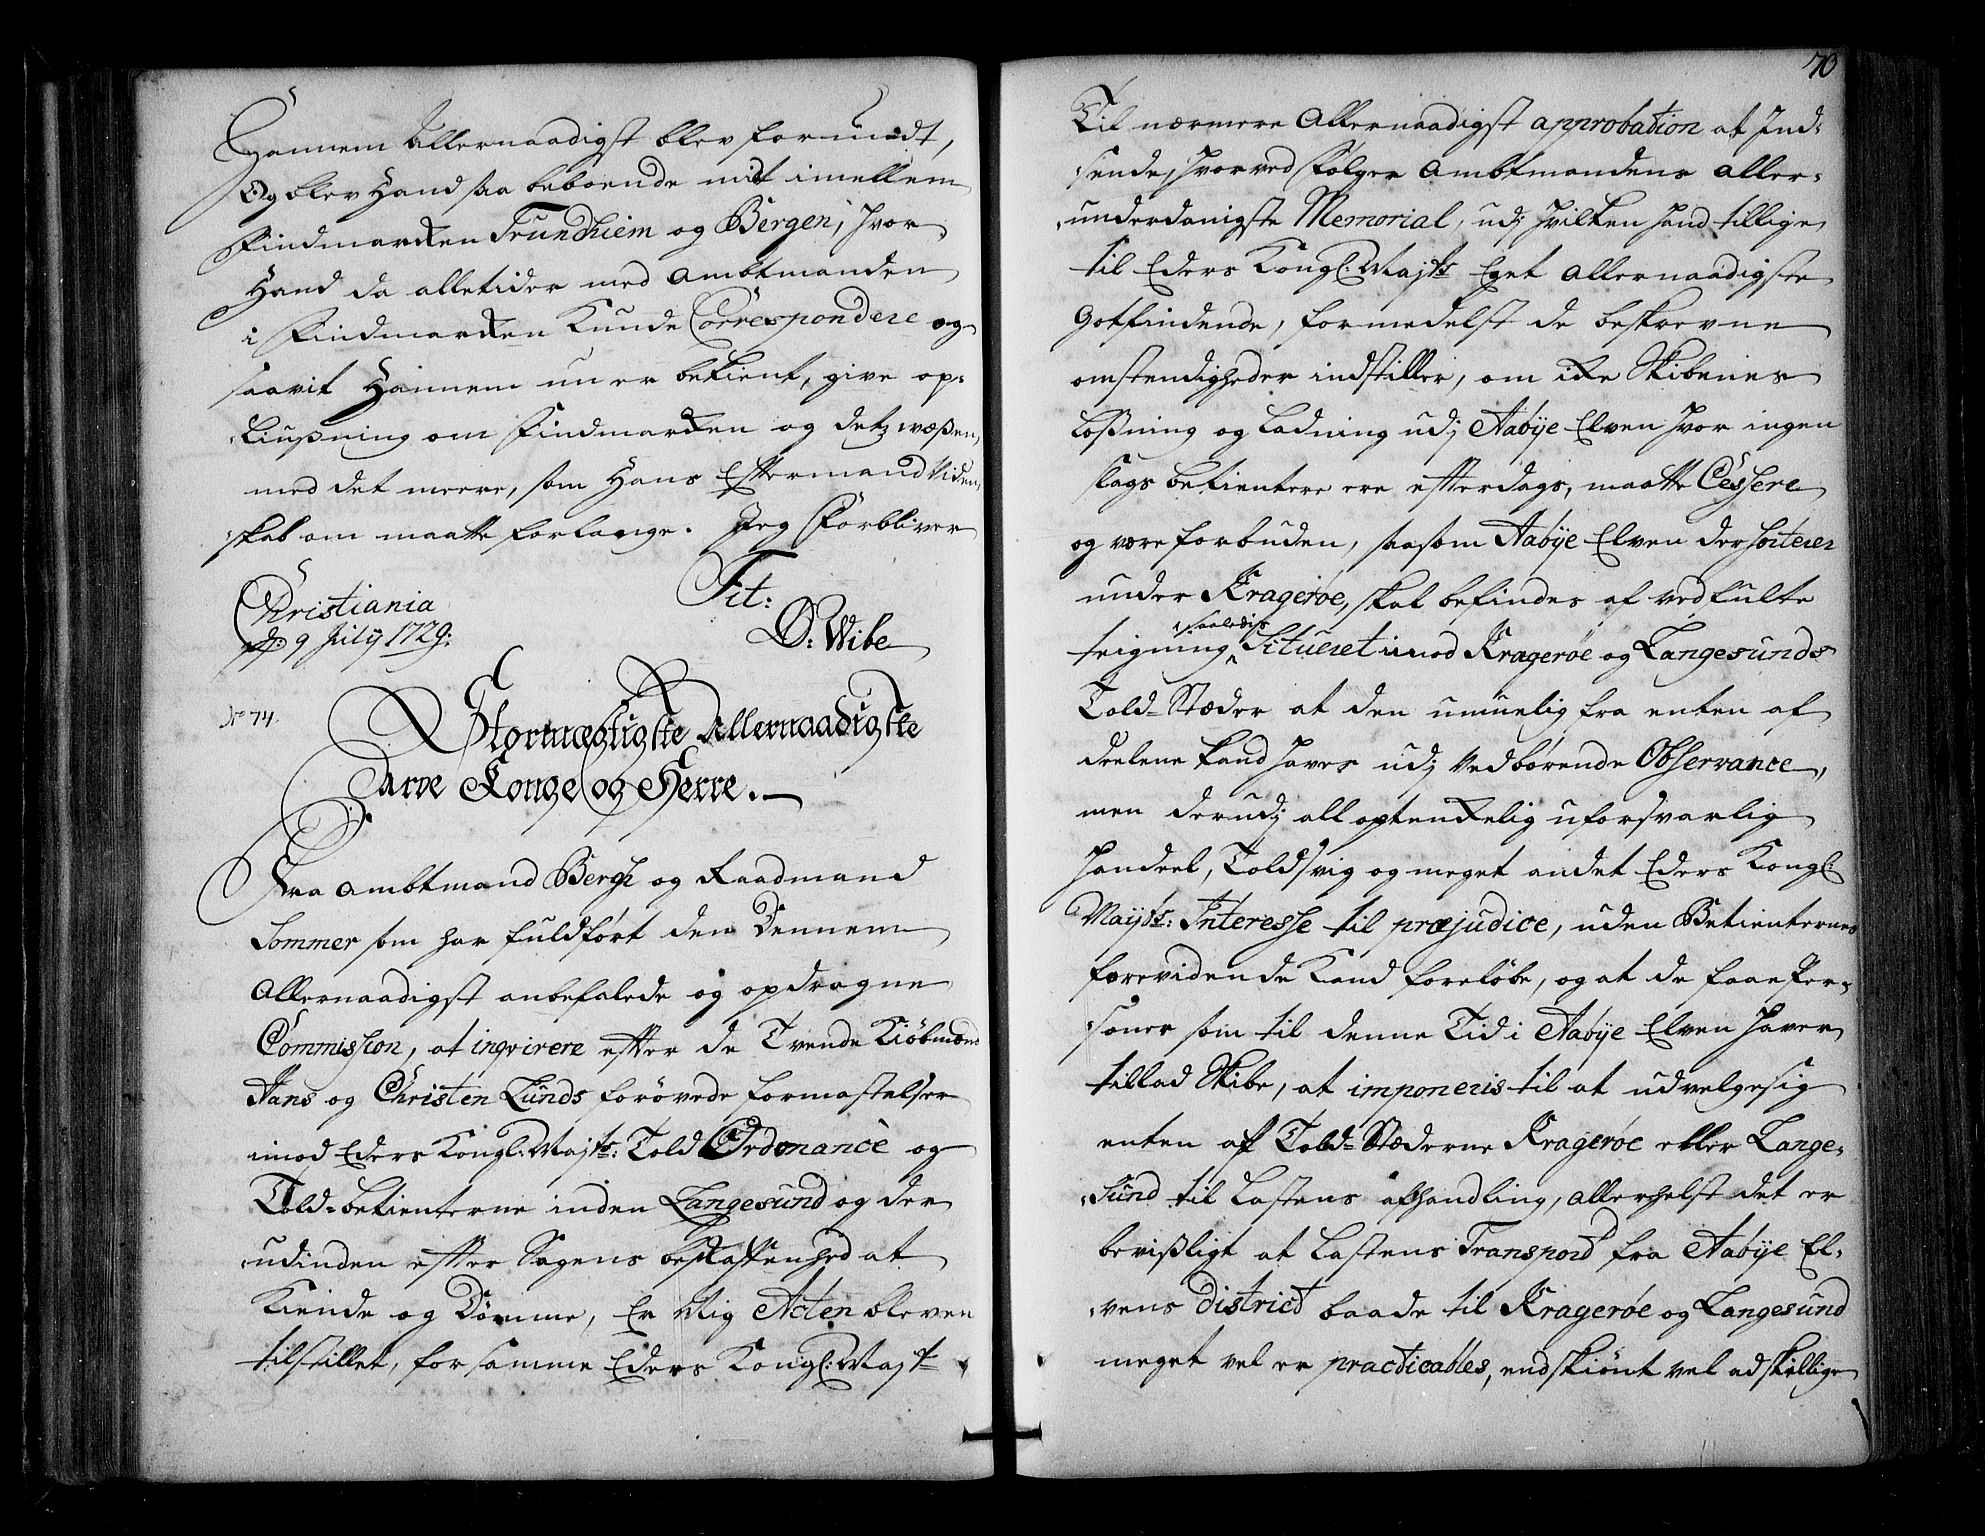 Hannem Allernaadigst blev forundt,
Og blev Hand saa beboende mit imellem
Findmarcken Trundhiem og Bergen, hvor
Hand da alletider med Ambtmanden
i Findmarcken Kunde Correspondere og
saavit Hannem nu er bekient, give op-
liußning om Findmarcken og detz wæßen,
med det meere, som Hans Eftermand Viden-
skab om maatte forlange. Jeg Forbliver
Christiania
d: 9 July 1729:
Tit:
D: Wibe
No 74.
Stormægtigste Allernaadigste
Arve Konge og Herre.
Fra Ambtmand Bergh og Raadmand
Sommer som har fuldført den Dennem
Allernaadigst anbefalede og opdragne
Commission, at inqvirere efter de Tvende Kiøbmænd
Hans og Christen Lunds forøvede formastelser
imod Eders Kongl: Majts: Told Ordonance og
Told-betienterne inden Langesund og der
udinden efter Sagens beskaffenhed at
Kiende og Dømme, Er Mig Acten bleven
tilstillet, for samme Eders Kongl: Majt
70
Til nærmere Allernaadigst approbation at Ind-
sende, hvorved følger Ambtmandens aller-
underdanigste Memorial, udj hvilken hand tillige
til Eders Kongl: Majts Eget Allernaadigste
Gotfindende, formedelst de beskrevne
omstendigheder indstiller, om icke Skibenes
Loßning og Ladning udj Aabye Elven hvor ingen
slags betientere ere efterdags, maatte Cessere
og være forbuden, saasom Aabye Elven der sorterer
under Kragerøe, skal befindes af vedfulte
teigning saaledis Situeret imod Kragerøe og Langesunds
Told-Stæder at den umuelig fra enten af
deelene kand haves udj vedbørende Observance,
men derudj all optenckelig uforsvarlig
handeel, Toldsvig og meget andet Eders Kongl:
Mayts: Interesse til præjudice, uden Betienternes
forevidende Kand foreløbe, og at de faae Per-
soner som til denne Tid i Aabye Elven haver
tillad Skibe, at imponeris til at udvelge sig
enten af Told-Stæderne Kragerøe eller Lange-
sund til Lastens afhandling, allerhelst det er
bevißligt at Lastens Transport fra Aabye El-
vens District baade til Kragerøe og Langesund
meget vel er practicables, endskiønt vel adskillige